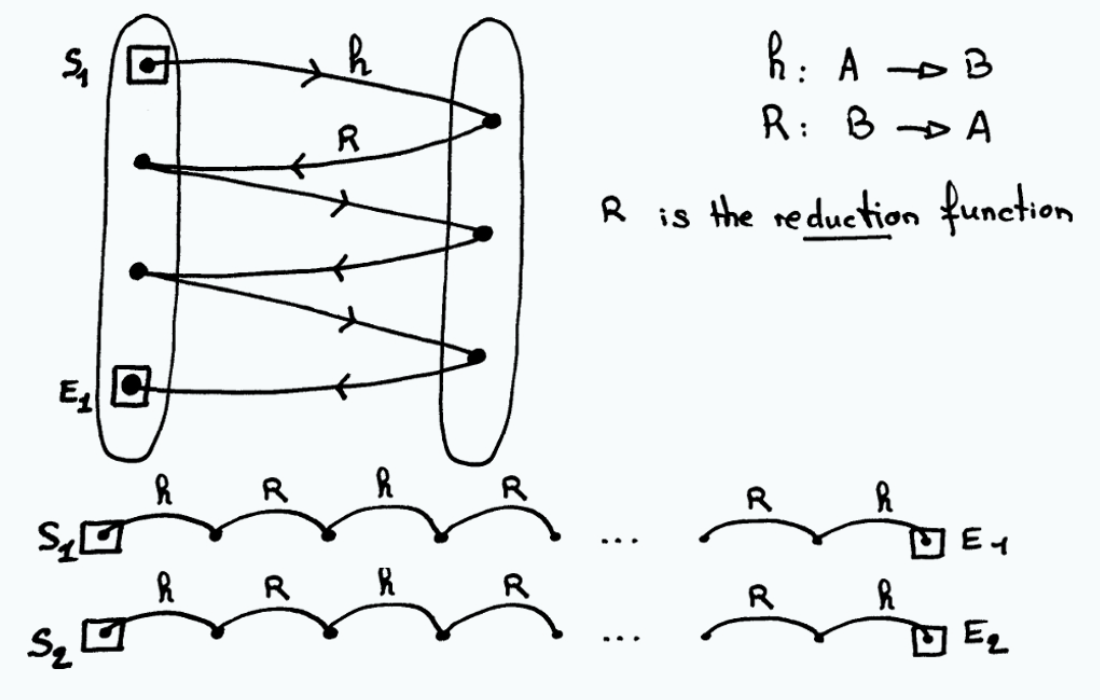 S1
h
R
E1
h: A → B
R: B → A
R is the reduction function
h R h R R h
S1 ... E1
h R h R R h
S2 ... E2